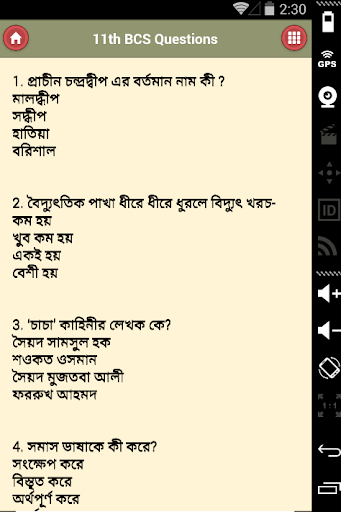 2:30
11th BCS Questions
GPS
1. প্রাচীন চন্দ্রদ্বীপ এর বর্তমান নাম কী ?
মালদ্বীপ
সদ্বীপ
হাতিয়া
বরিশাল
2. বৈদ্যুৎতিক পাখা ধীরে ধীরে ধুরলে বিদ্যুৎ খরচ-
কম হয়
খুব কম হয়
একই হয়
বেশী হয়
ID
3. 'চাচা' কাহিনীর লেখক কে?
সৈয়দ সামসুল হক
শওকত ওসমান
সৈয়দ মুজতবা আলী
ফররুখ আহমদ
1:1
4. সমাস ভাষাকে কী করে?
সংক্ষেপ করে
বিস্তৃত করে
অর্থপূর্ণ করে